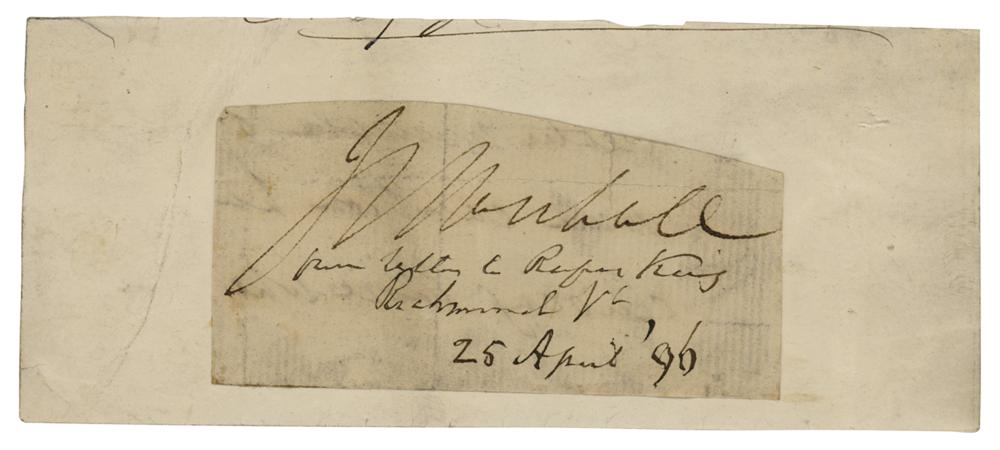 J Marshall
from letter to Rufus King
Richmond Va
25 April '96